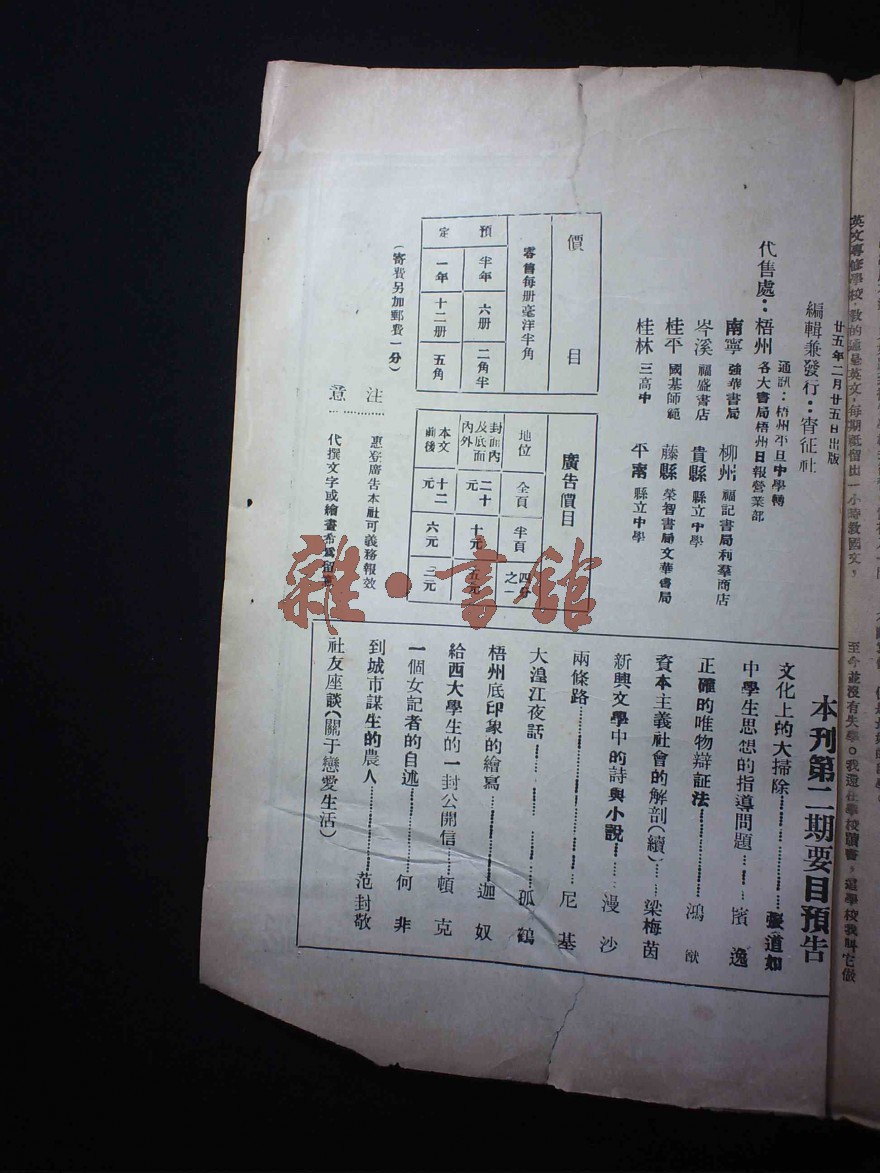 廿五年二月廿五日出版
編輯兼發行：宵征社
通訊：梧州平旦中學轉
代售處：梧州 各大書局梧州日報營業部
南寧 強華書局 柳州 福記書局利羣商店
岑溪 福盛書店 貴縣 縣立中學
桂平 國基師範 藤縣 榮智書局文華書局
桂林 三高中 平南 縣立中學
價目
零售每册毫洋半角
預定
半年 六册 二角半
一年 十二册 五角
（寄費另加郵費一分）
廣告價目
地位 全頁 半頁 四分之一
封面內及底面內外 二十元 十元 五元
本文前後 十二元 六元 三元
注意
惠登廣告本社可義務報效
代撰文字或繪畫希爲留意
本刊第二期要目預告
文化上的大掃除 張道如
中學生思想的指導問題 濱逸
正確的唯物辯証法 鴻猷
資本主義社會的解剖（續） 梁梅茵
新興文學中的詩與小說 漫沙
兩條路 尼基
大湟江夜話 孤鶴
梧州底印象的繪寫 迦奴
給西大學生的一封公開信 頓克
一個女記者的自述 何非
到城市謀生的農人 范封敬
社友座談（關于戀愛生活）
英文專修學校，教的通是英文，每期祗留出一小時教國文，
至今並沒有失學。我還在學校讀書，這學校我叫它做
雜·書館